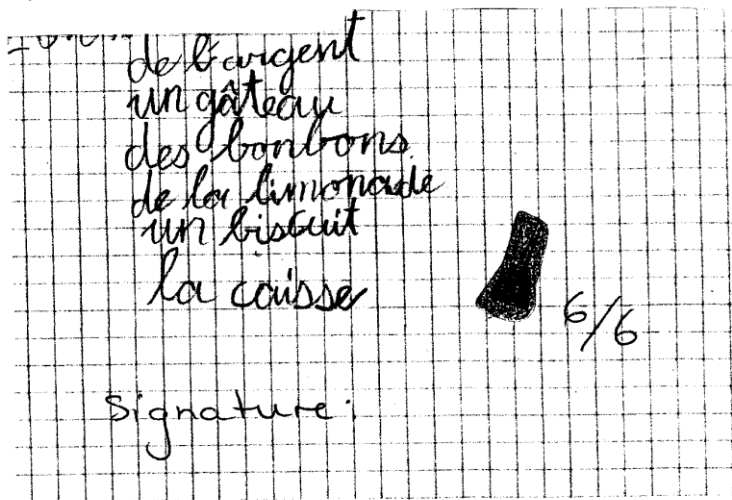 de l'argent
un gâteau
des bonbons
de la limonade
un biscuit
la caisse
6/6
Signature: